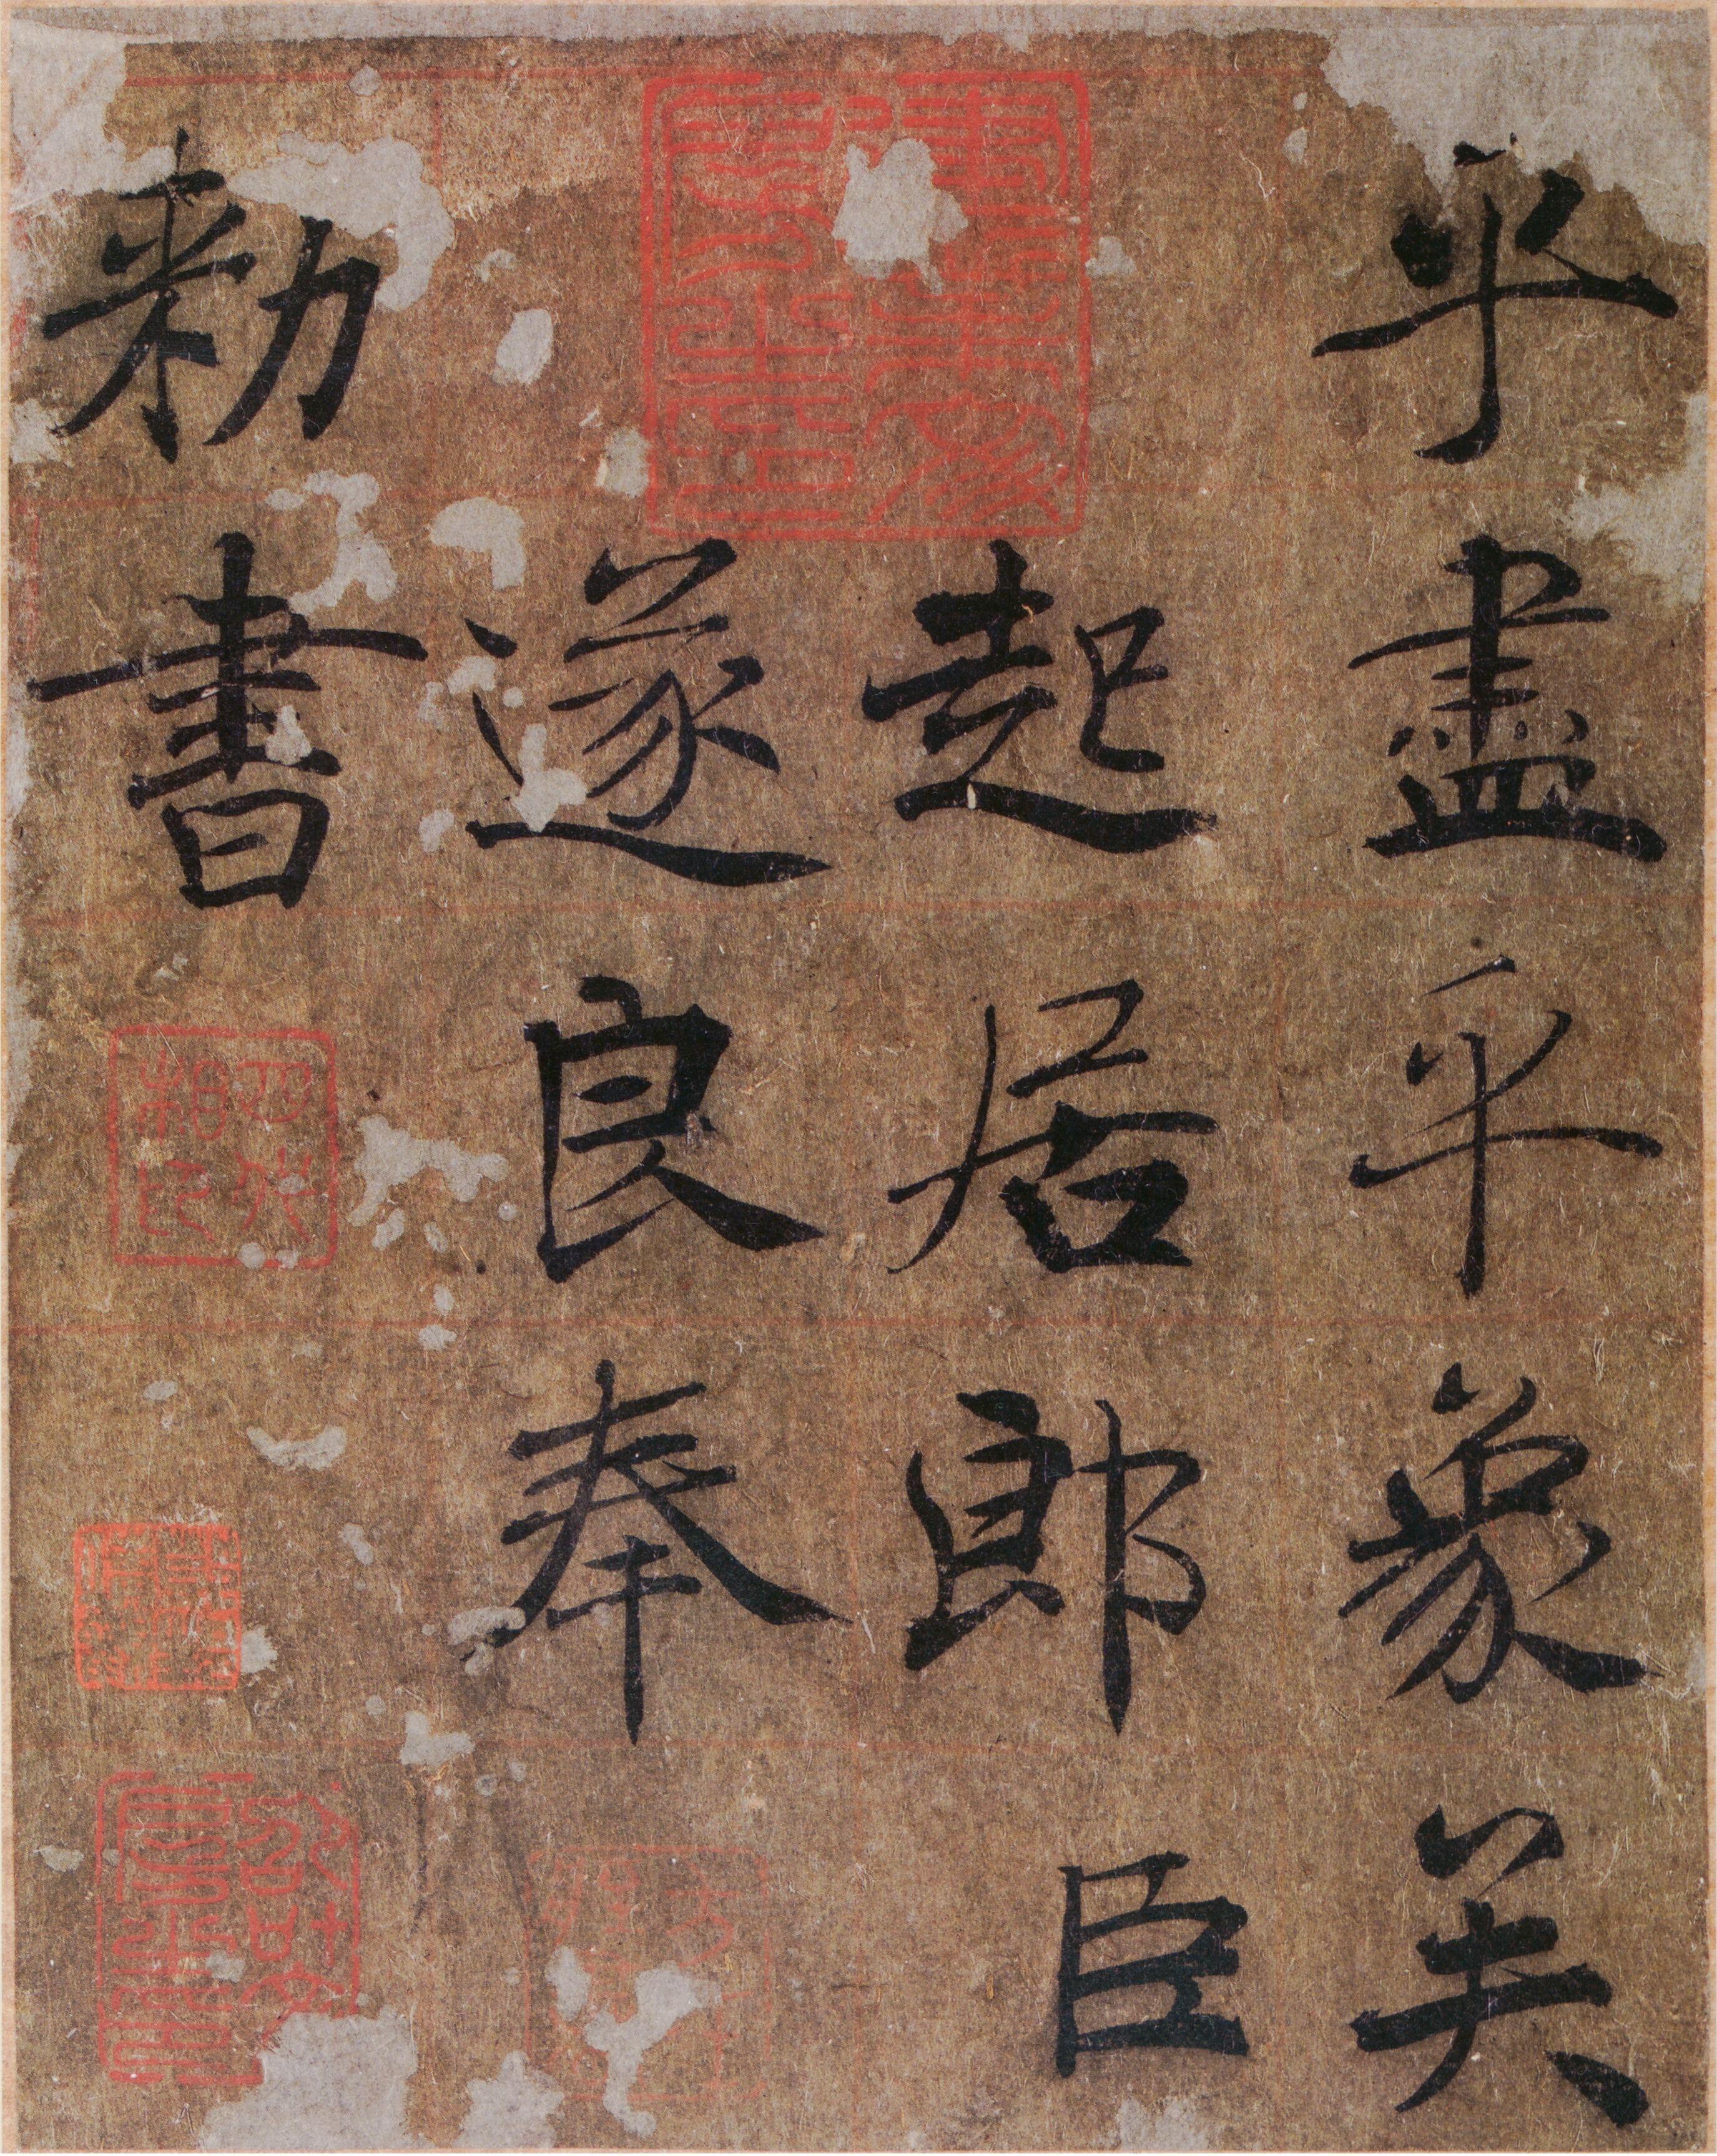 乎盡乎象矣
起居郎臣
遂良奉
敕書